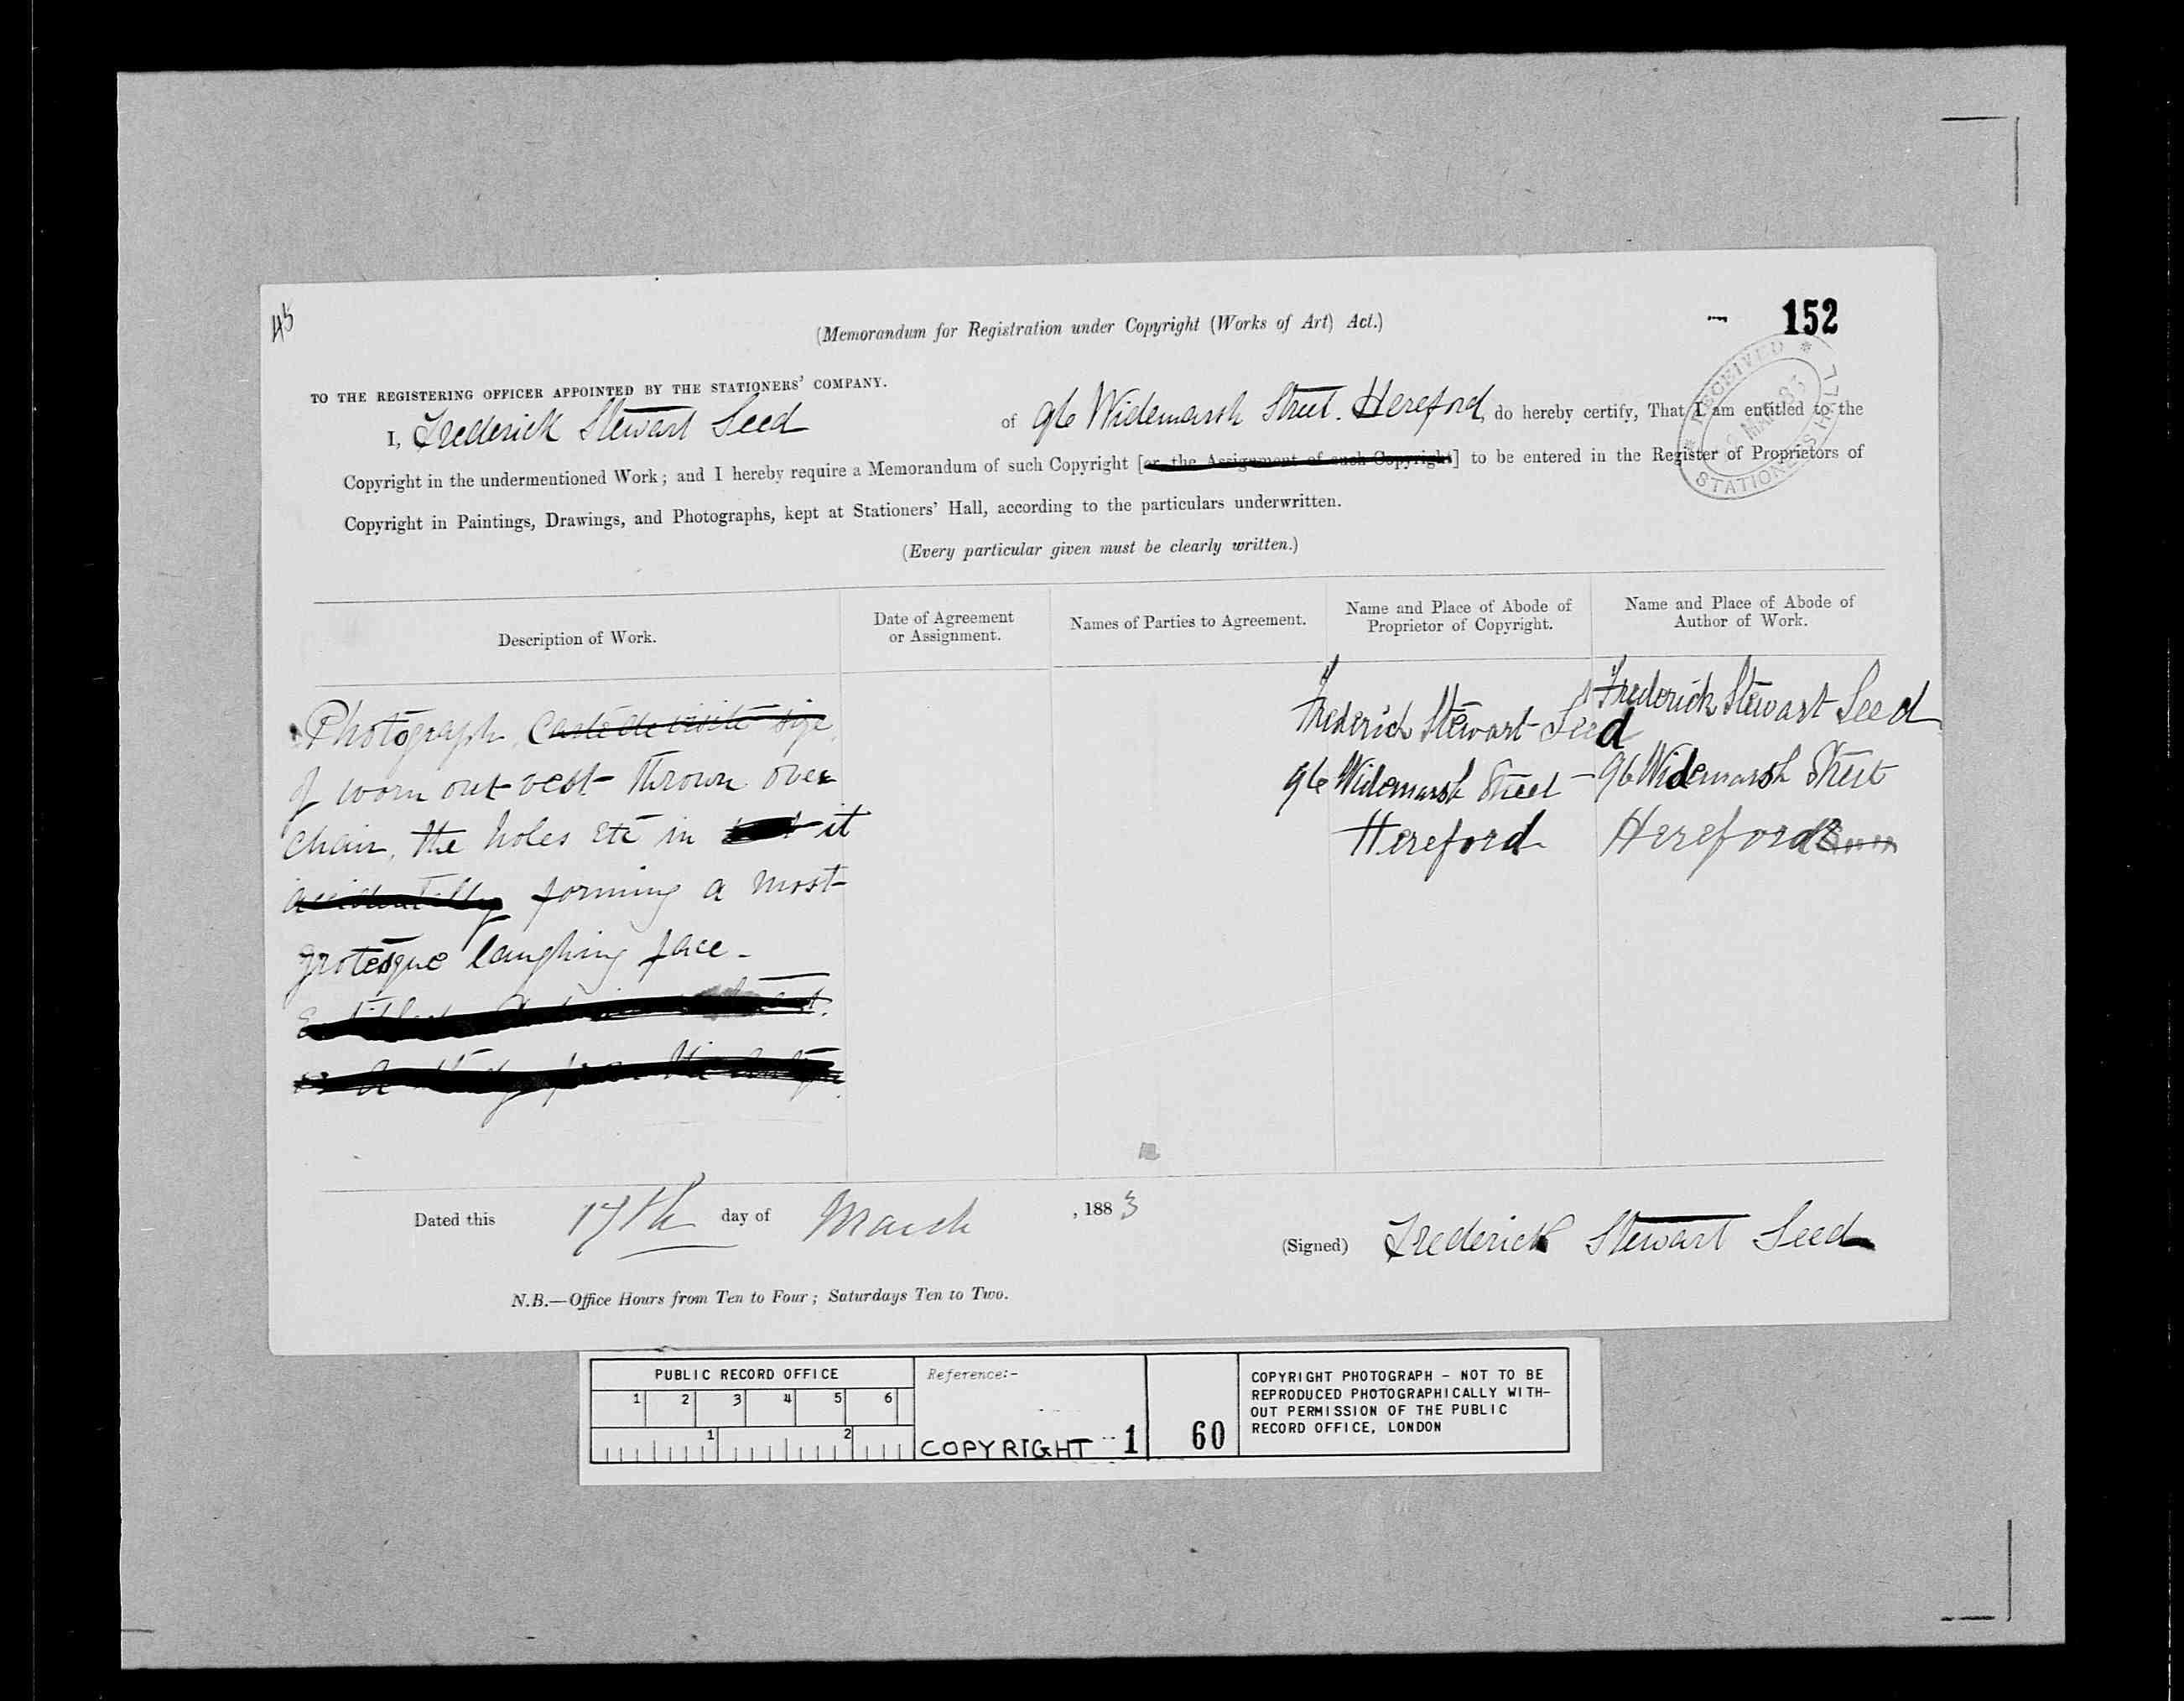 45
(Memorandum for Registration under Copyright (Works of Art) Act.)
152
TO THE REGISTERING OFFICER APPOINTED BY THE STATIONERS' COMPANY.
I, Frederick Stewart Seed of 96 Widemarsh Street. Hereford, do hereby certify, That I am entitled to the
Copyright in the undermentioned Work; and I hereby require a Memorandum of such Copyright [or the Assignment of such Copyright] to be entered in the Register of Proprietors of
Copyright in Paintings, Drawings, and Photographs, kept at Stationers' Hall, according to the particulars underwritten.
RECEIVED
MAR 83
STATIONERS HALL
(Every particular given must be clearly written.)
Description of Work.
Date of Agreement
or Assignment.
Names of Parties to Agreement.
Name and Place of Abode of
Proprietor of Copyright.
Name and Place of Abode of
Author of Work.
Photograph, Carte de visite size,
of worn out vest thrown over
chair, the holes etc in it
accidentally forming a most
grotesque laughing face -
Frederick Stewart Seed
96 Widemarsh Street -
Hereford
Frederick Stewart Seed
96 Widemarsh Street
Hereford
Dated this 17th day of March, 1883
(Signed) Frederick Stewart Seed
N.B.—Office Hours from Ten to Four; Saturdays Ten to Two.
PUBLIC RECORD OFFICE
1 2 3 4 5 6
1 2
Reference:-
COPYRIGHT 1
60
COPYRIGHT PHOTOGRAPH - NOT TO BE
REPRODUCED PHOTOGRAPHICALLY WITH-
OUT PERMISSION OF THE PUBLIC
RECORD OFFICE, LONDON